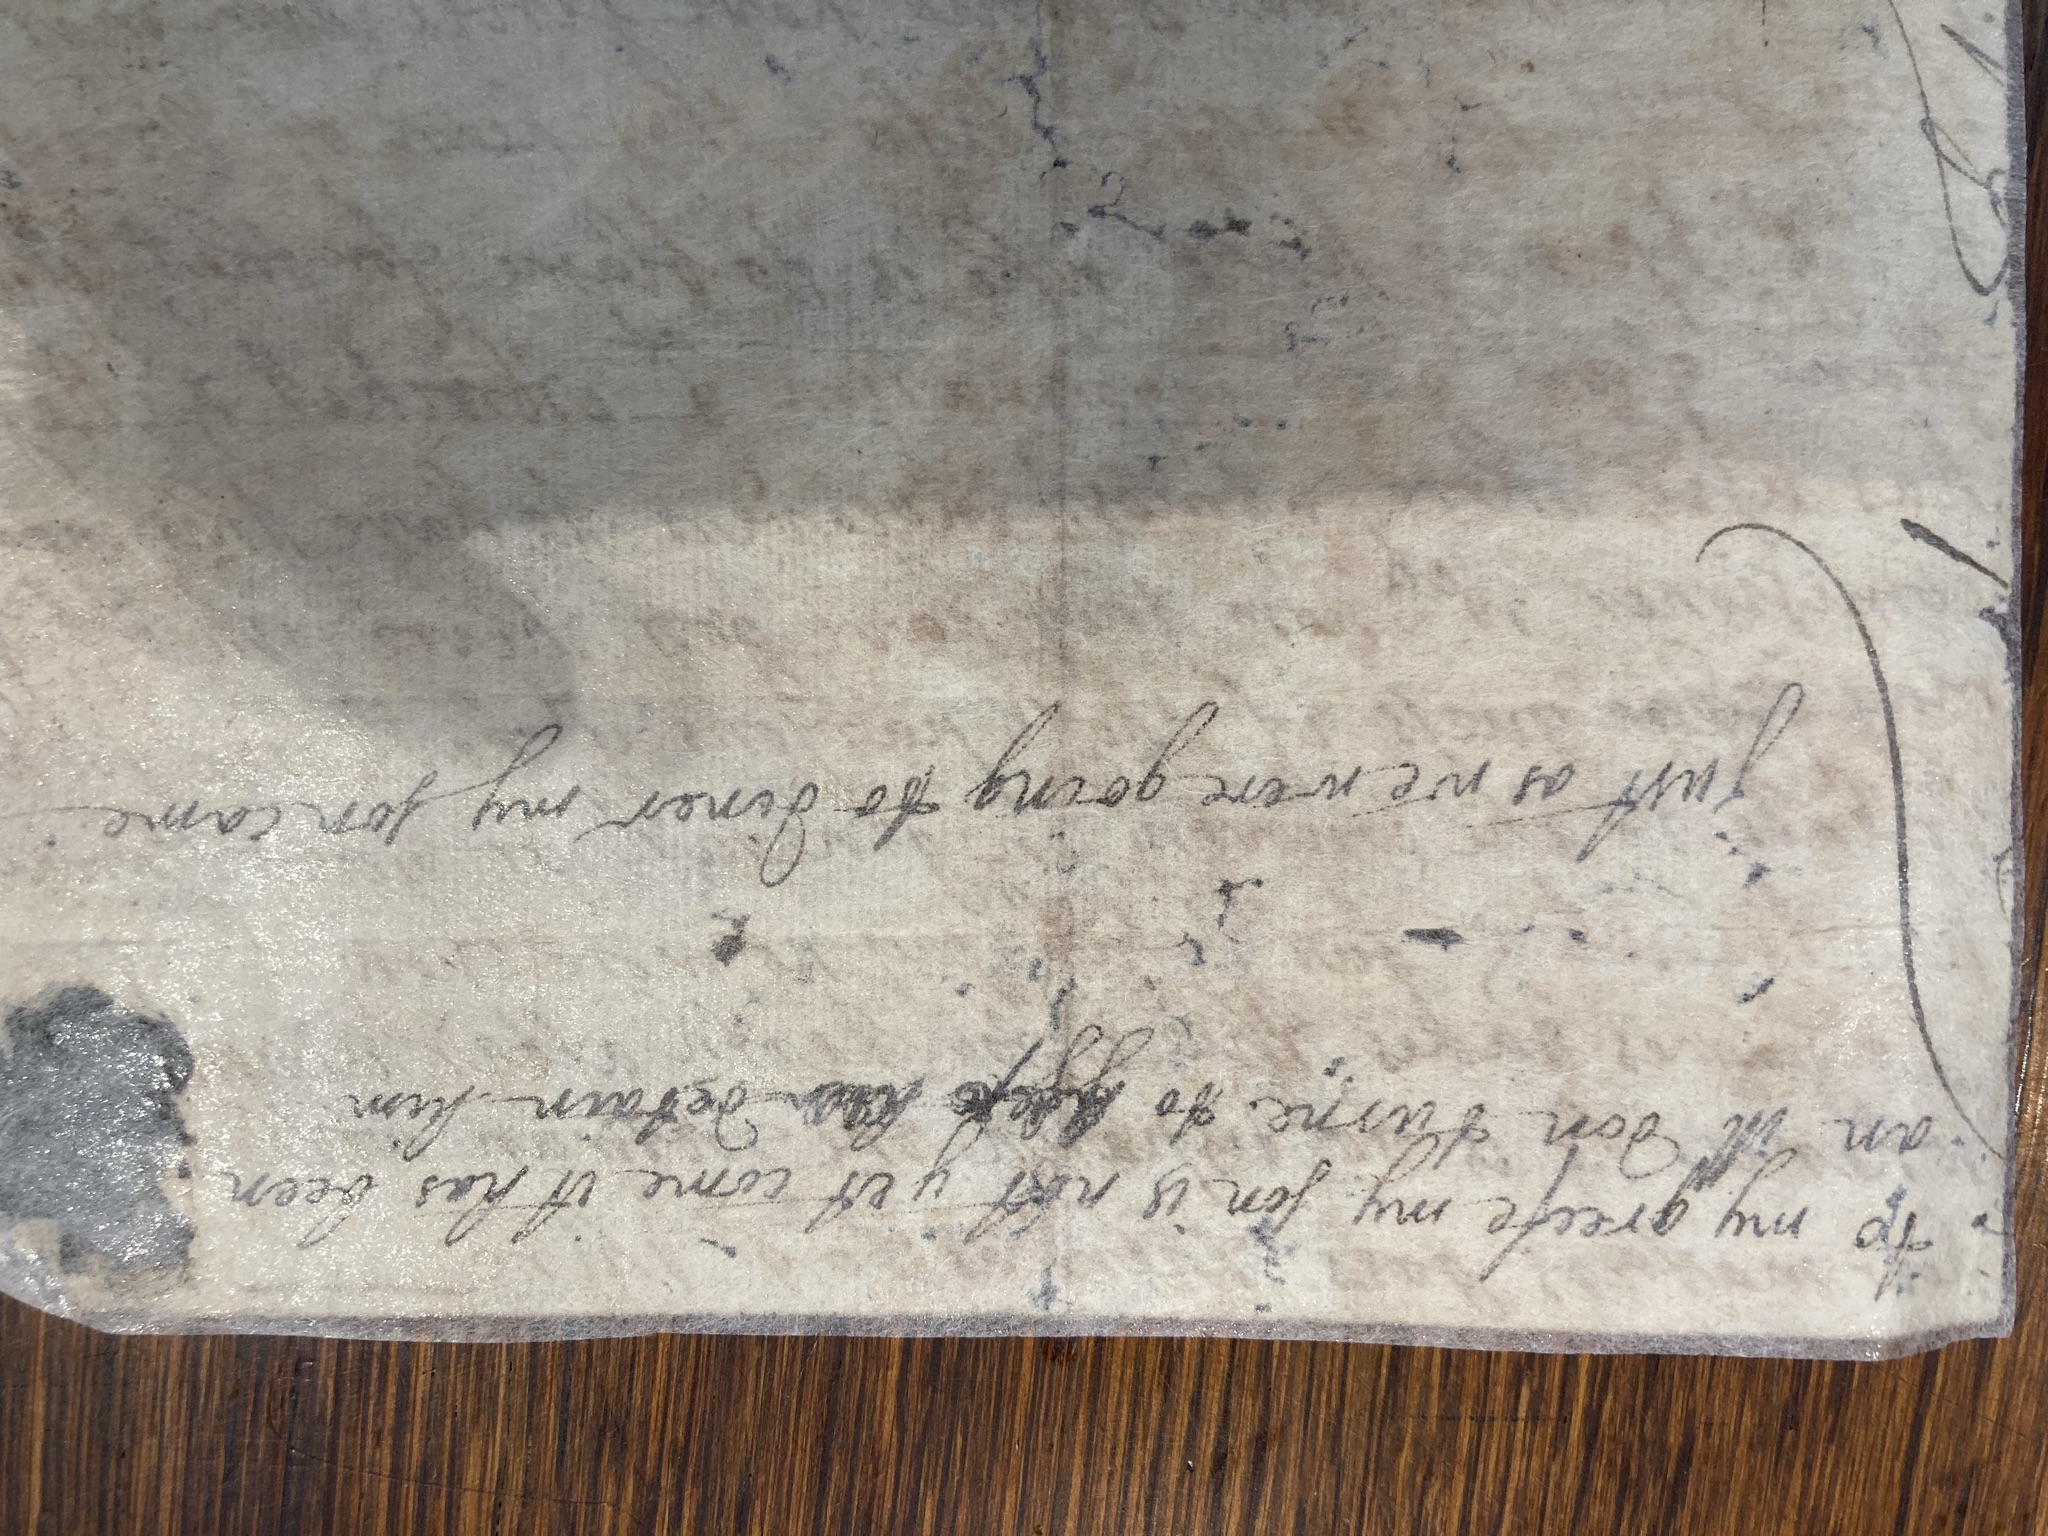 to my greefe my son is not yet come it has been
an ill don turne to detain him
just as we were going to diner my son came